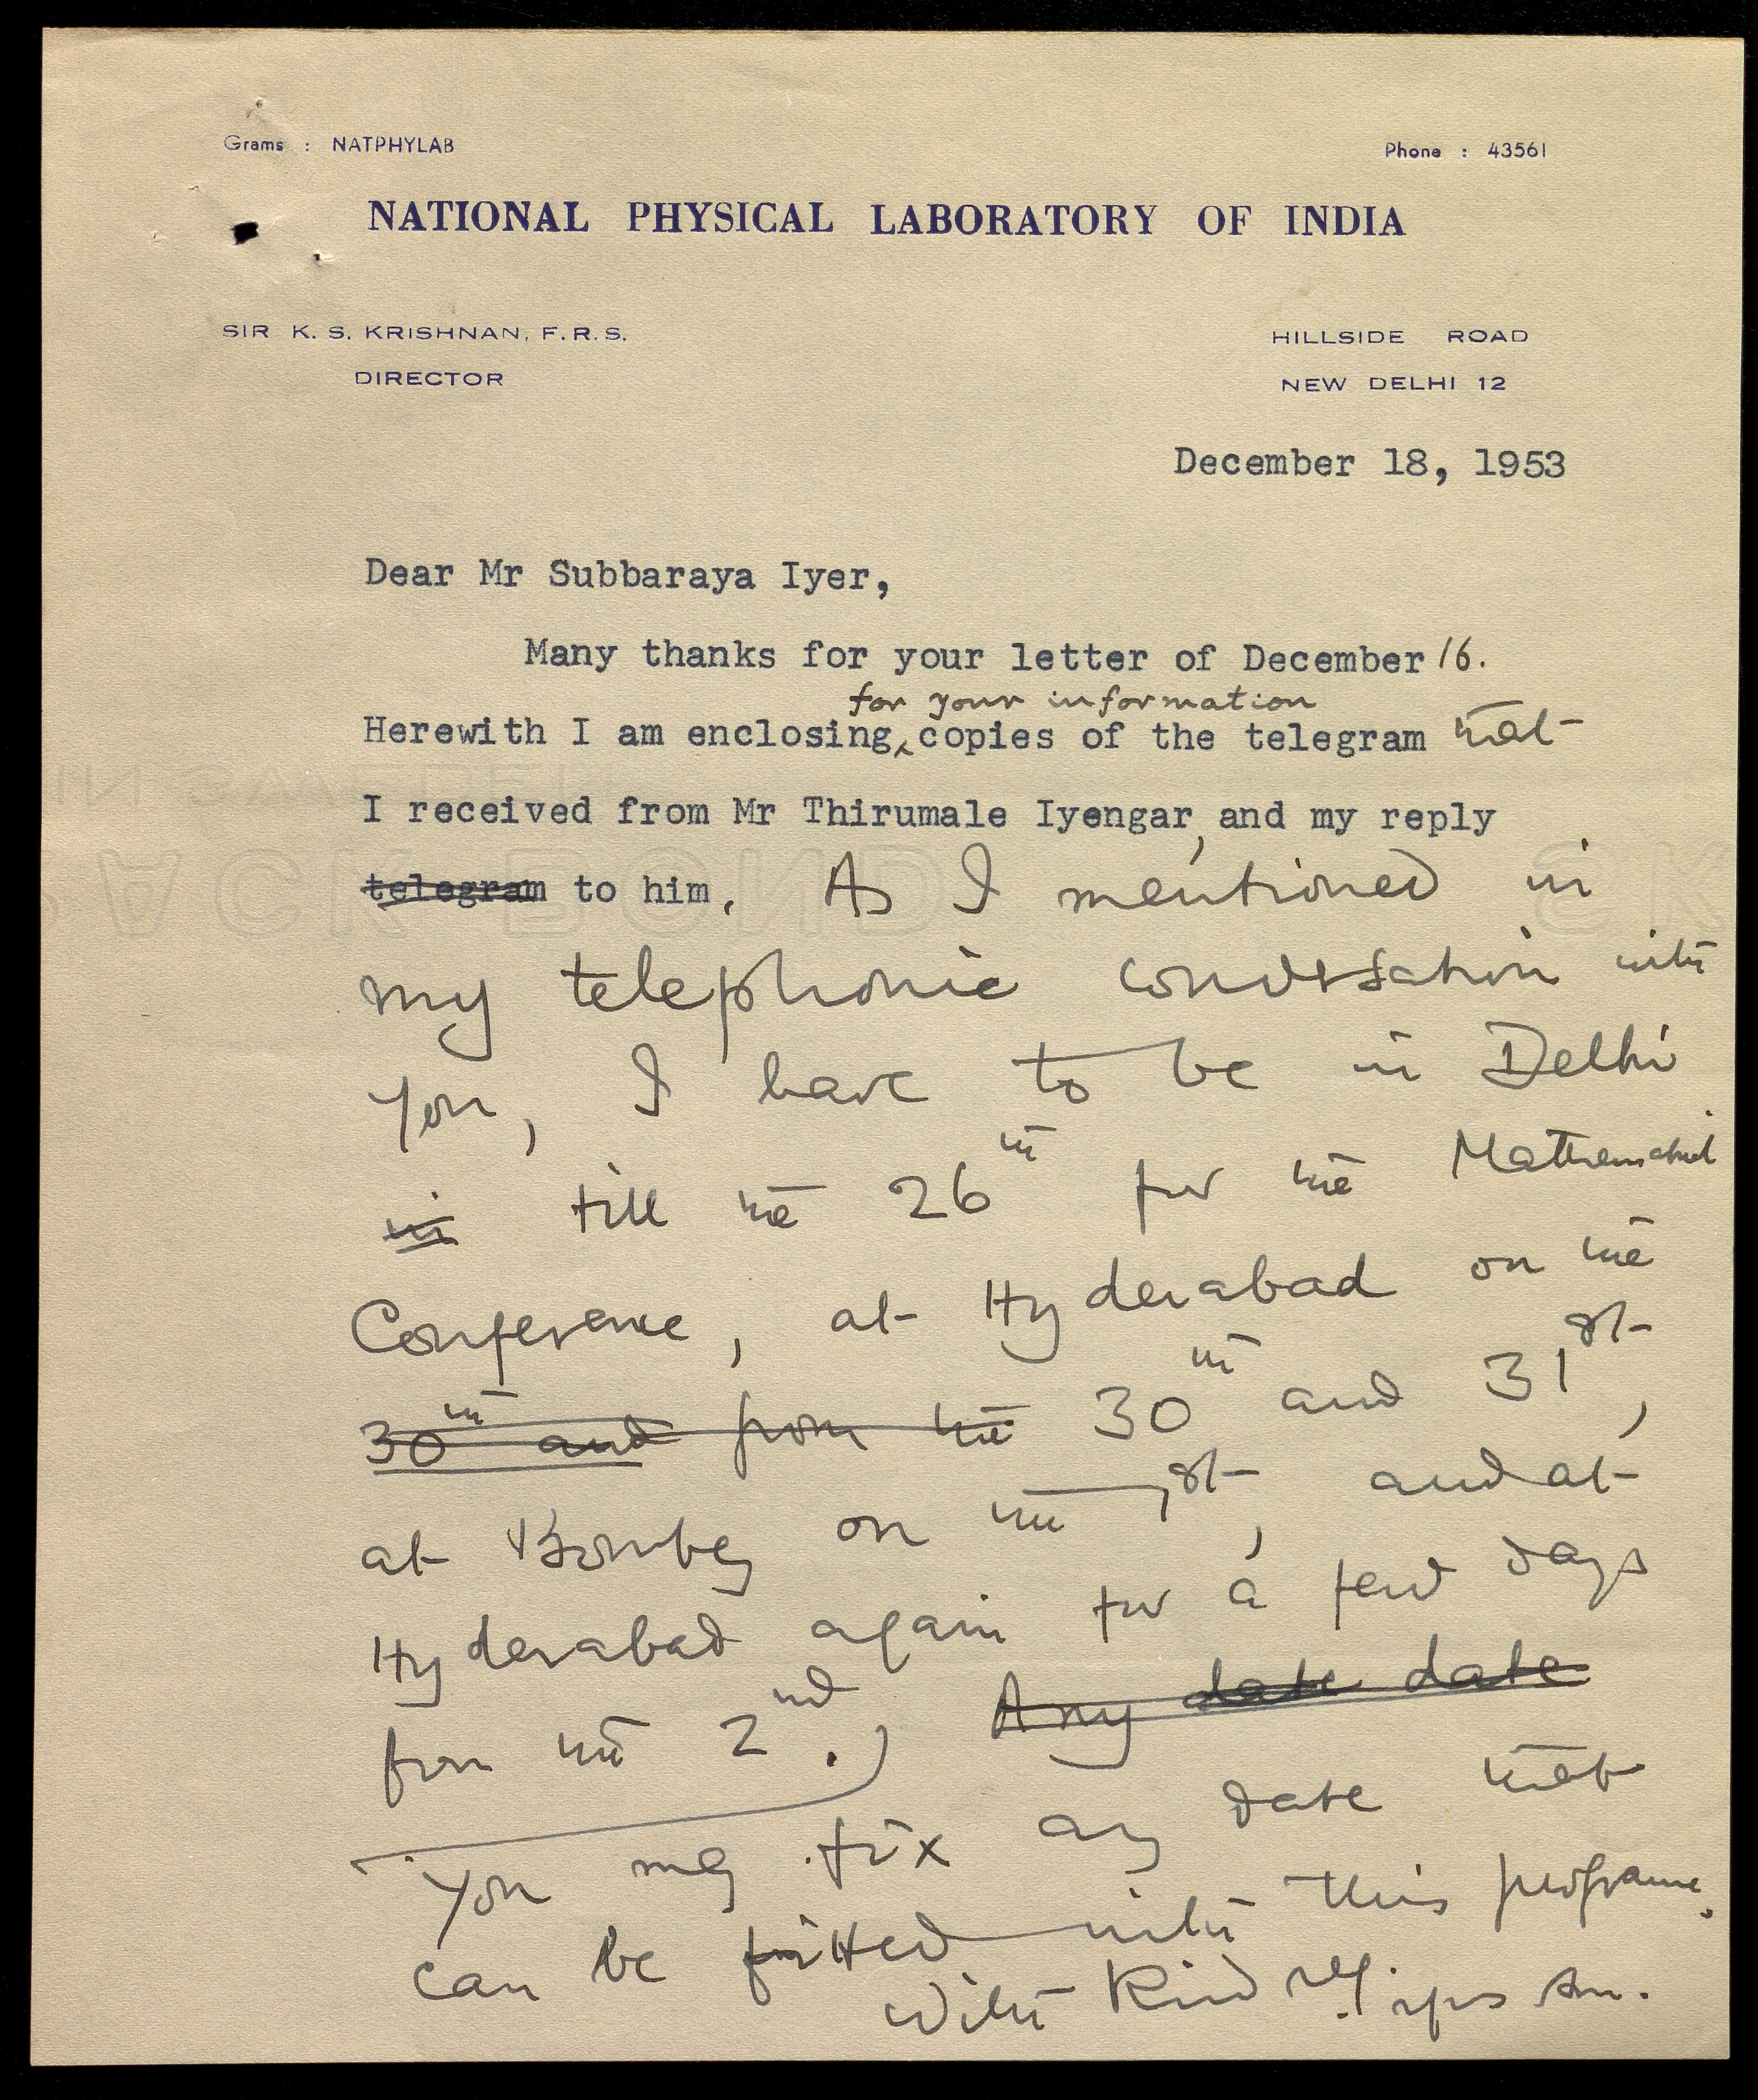 Grams : NATPHYLAB
Phone : 43561
NATIONAL PHYSICAL LABORATORY OF INDIA
SIR K. S. KRISHNAN, F.R.S.
DIRECTOR
HILLSIDE ROAD
NEW DELHI 12
December 18, 1953
Dear Mr Subbaraya Iyer,
Many thanks for your letter of December 16.
for your information
Herewith I am enclosing, copies of the telegram that
I received from Mr Thirumale Iyengar, and my reply
telegram to him. As I mentioned in
my telephonic conversation with
you, I have to be in Delhi
in till the 26th for the Mathematical
Conference, at Hyderabad on the
30th and from the 30th and 31st,
at Bombay on the 1st, and at
Hyderabad again for a few days
from the 2nd. Any date date
You may fix any date that
can be fitted with this programme.
With Kind